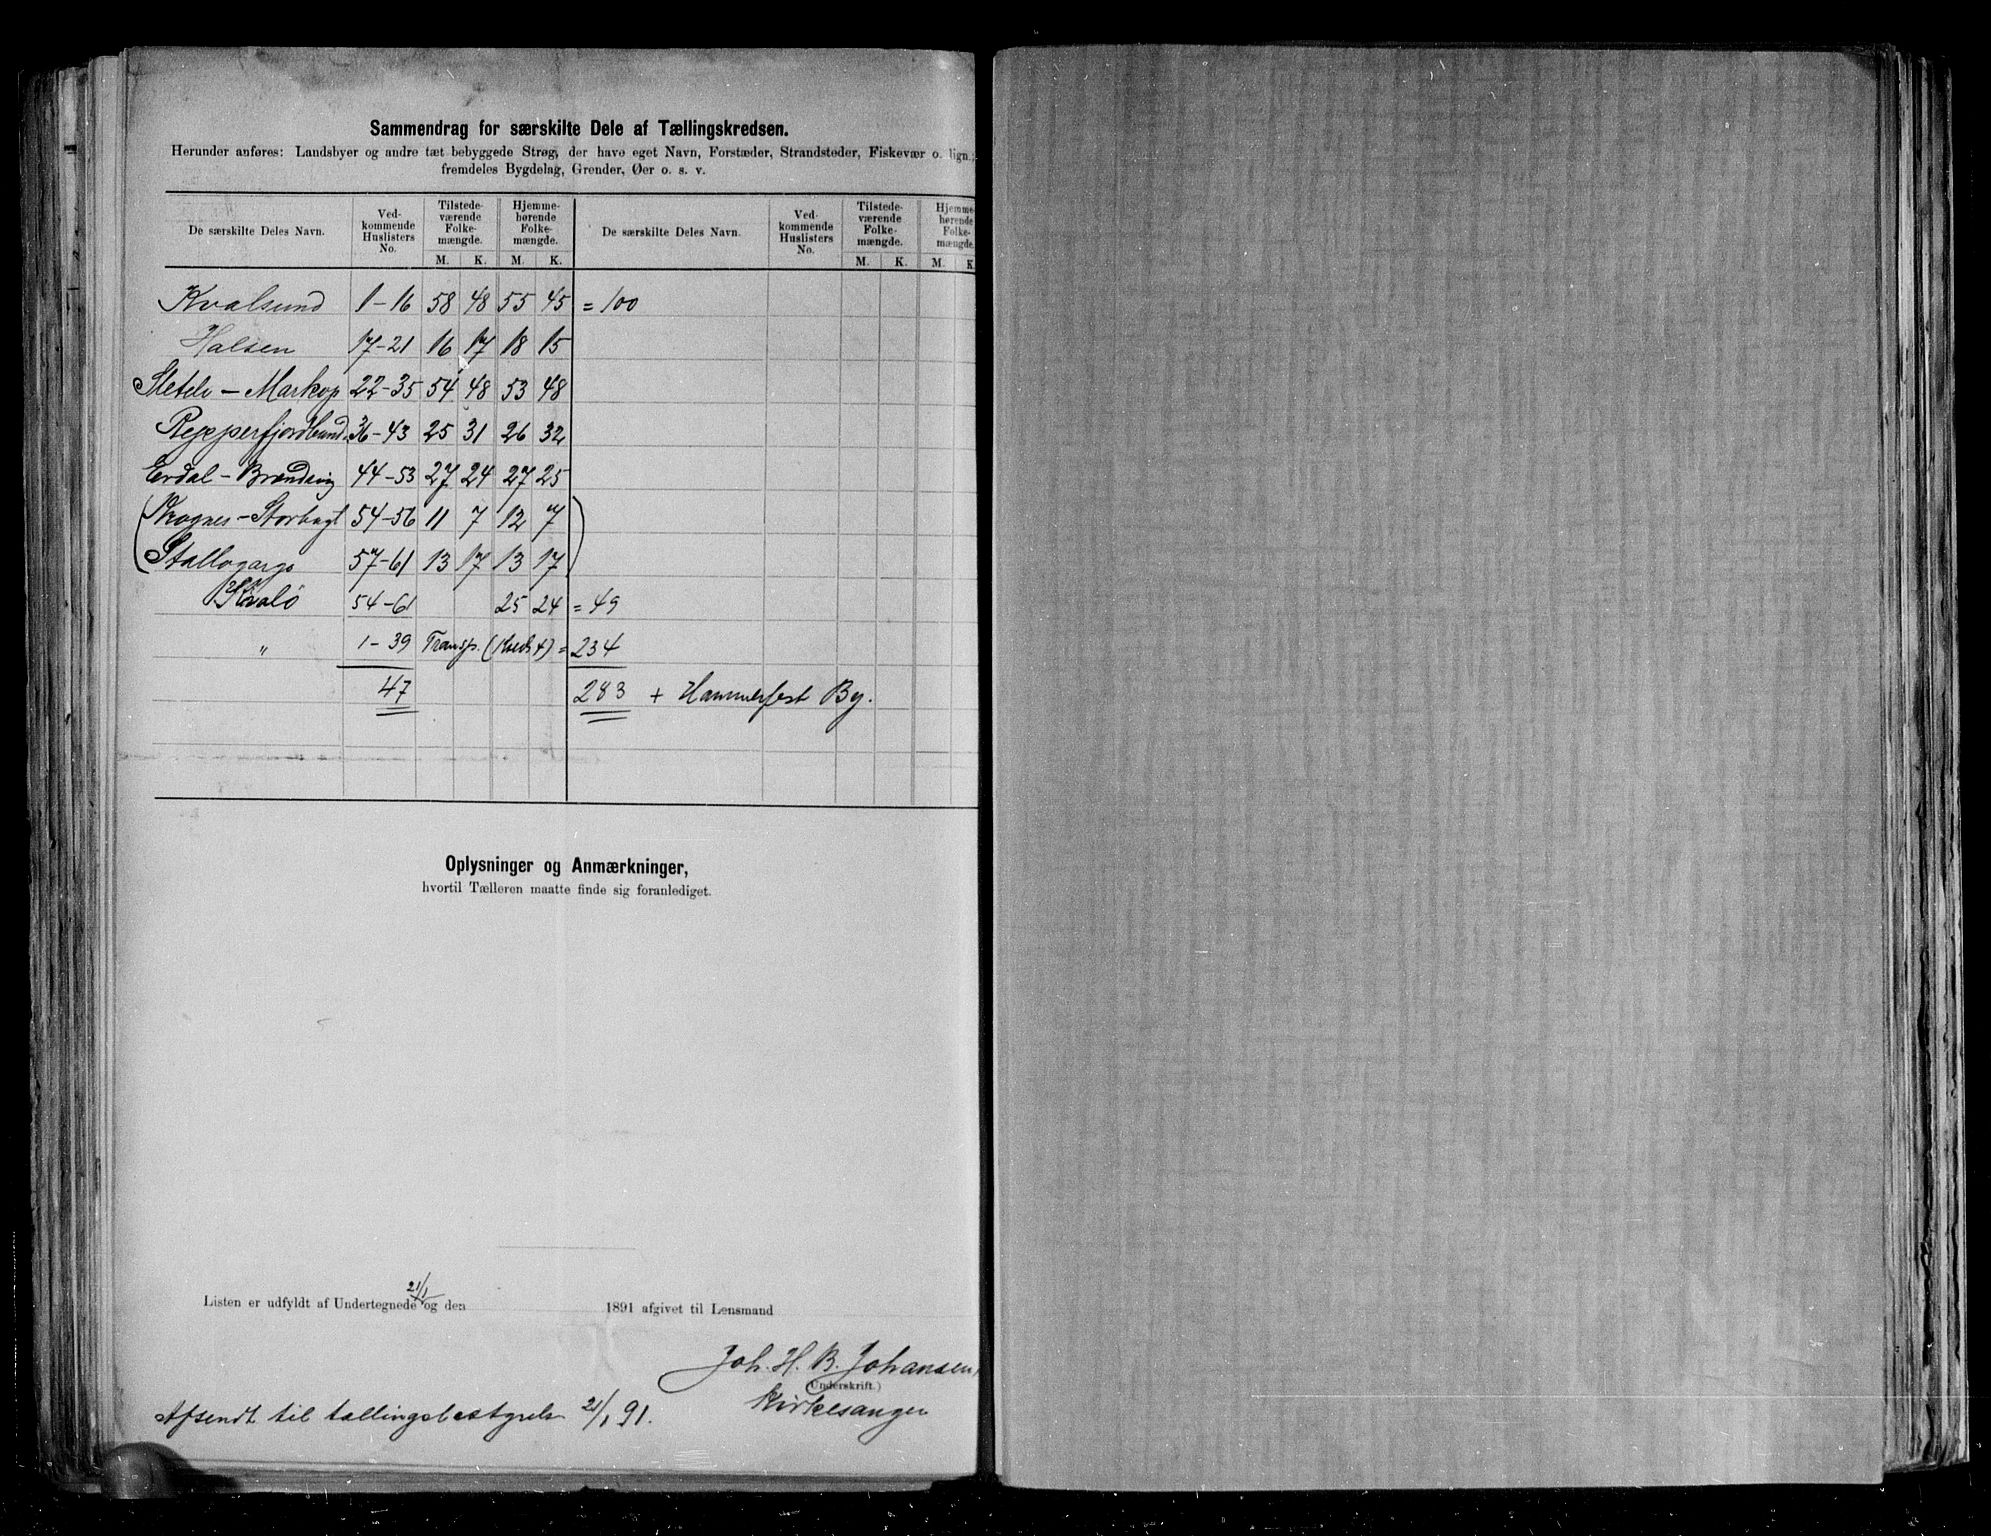 Sammendrag for særskilte Dele af Tællingskredsen.
Herunder anføres: Landsbyer og andre tæt bebyggede Strøg, der have eget Navn, Forstæder, Strandsteder, Fiskevær o. lign.;
fremdeles Bygdelag, Grender, Øer o. s. v.
De særskilte Deles Navn. Ved-kommende Huslisters No. Tilstede-værende Folke-mængde. Hjemme-hørende Folke-mængde. De særskilte Deles Navn. Ved-kommende Huslisters No. Tilstede-værende Folke-mængde. Hjemme-hørende Folke-mængde.
M. K. M. K. M. K. M. K.
Kvalsund 1-16 58 48 55 45 = 100
Halsen 17-21 16 17 18 15
- Markop 22-35 54 48 53 48
Repperfjordbund 36-43 25 31 26 32
Erdal - 44-53 27 24 27 25
( - Storbugt 54-56 11 7 12 7 )
( Stallogargo 57-61 13 17 13 17 )
Kvalö 54-61 25 24 = 49
" 1-39 Transp. (Kreds 4) = 234
47 283 + Hammerfest By.
Oplysninger og Anmærkninger,
hvortil Tælleren maatte finde sig foranlediget.
Listen er udfyldt af Undertegnede og den 21/1 1891 afgivet til Lensmand
Joh. H. B. Johansen,
(Underskrift.)
Kirkesanger
Afsendt til tællingsbestyrelse 21/1 91.